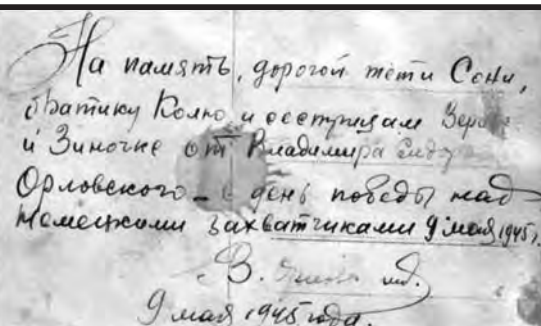 На память, дорогой тети Сони,
братику Колю и сестрицам
и Зиночке от Владимира
Орловского – в день победы над
немецкими захватчиками 9 мая 1945г.
В.
9 мая 1945 года.